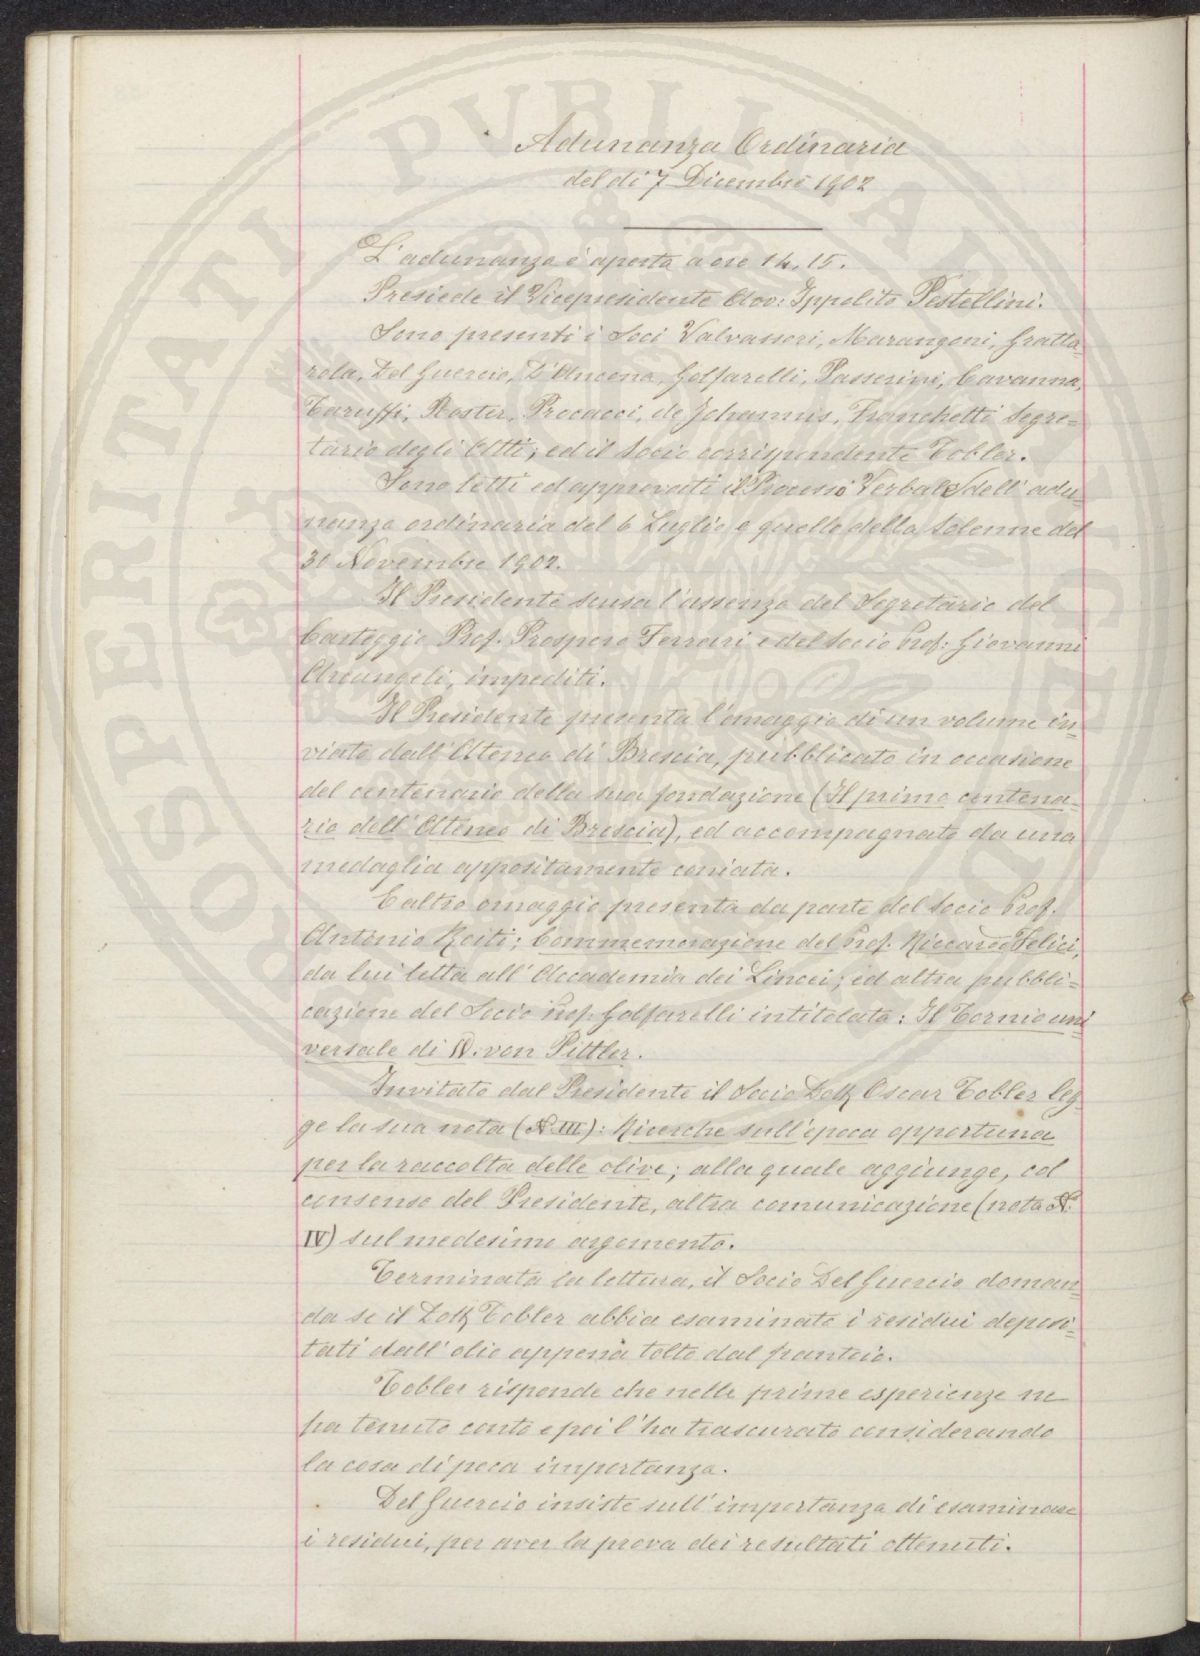 Adunanza Ordinaria
del dì 7 Dicembre 1902
L'adunanza è aperta a ore 14,15.
Presiede il Vicepresidente Avv: Ippolito Pestellini.
Sono presenti i Soci Valvassori, Marangoni, Gratta-
rola, Del Guercio, D'Ancona, Golfarelli, Passerini, Cavanna,
Taruffi, Roster, Procacci, de Johannis, Franchetti Segre=
tario degli Atti; ed il Socio corrispondente Tobler.
Sono letti ed approvati il Processo Verbale dell'adu-
nanza ordinaria del 6 Luglio e quello della Solenne del
30 Novembre 1902.
Il Presidente scusa l'assenza del Segretario del
Carteggio Prof. Prospero Ferrari e del Socio Prof: Giovanni
Arcangeli, impediti.
Il Presidente presenta l'omaggio di un volume in-
viato dall'Ateneo di Brescia, pubblicato in occasione
del centenario della sua fondazione (Il primo centena-
rio dell'Ateneo di Brescia), ed accompagnato da una
medaglia appositamente coniata.
E altro omaggio presenta da parte del Socio Prof.
Antonio Roiti; Commemorazione del Prof. Riccardo Felici,
da lui letta all'Accademia dei Lincei; ed altra pubbli=
cazione del Socio Prof. Golfarelli intitolata: Il Tornio uni
versale di W. von Pittler.
Invitato dal Presidente il Socio Dott Oscar Tobler leg-
ge la sua nota (N. III): Ricerche sull'epoca opportuna
per la raccolta delle olive; alla quale aggiunge, col
consenso del Presidente, altra comunicazione (nota N.
IV) sul medesimo argomento.
Terminata la lettura, il Socio Del Guercio doman
da se il Dott Tobler abbia esaminato i residui deposi=
tati dall'olio appena tolto dal frantoio.
Tobler risponde che nelle prime esperienze ne
ha tenuto conto e poi l'ha trascurato considerando
la cosa di poca importanza.
Del Guercio insiste sull'importanza di esaminare
i residui, per aver la prova dei resultati ottenuti.
PROSPERITATI PVBLICAE